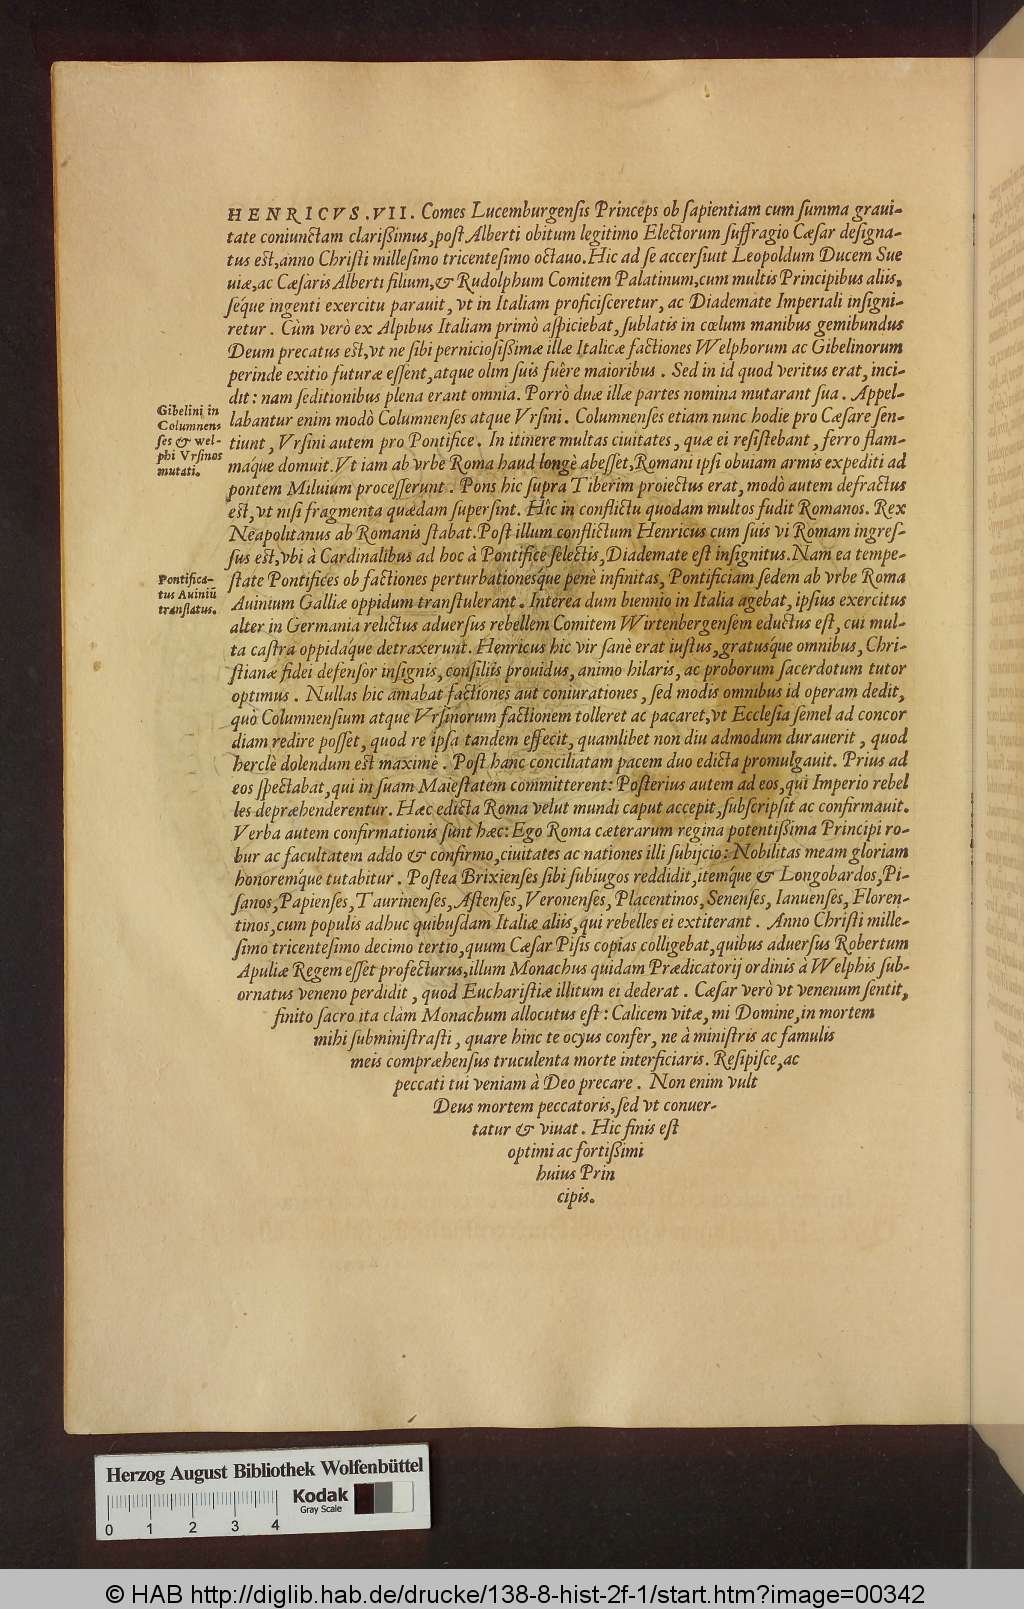 HENRICVS.VII. Comes Lucemburgensis Princeps ob sapientiam cum summa graui-
tate coniunctam clarißimus, post Alberti obitum legitimo Electorum suffragio Cæsar designa-
tus est, anno Christi millesimo tricentesimo octauo. Hic ad se accersiuit Leopoldum Ducem Sue
uiæ, ac Cæsaris Alberti filium, & Rudolphum Comitem Palatinum, cum multis Principibus aliis,
séque ingenti exercitu parauit, vt in Italiam proficisceretur, ac Diademate Imperiali insigni-
retur. Cùm verò ex Alpibus Italiam primò aspiciebat, sublatis in cœlum manibus gemibundus
Deum precatus est, vt ne sibi perniciosißimæ illæ Italicæ factiones Welphorum ac Gibelinorum
perinde exitio futuræ essent, atque olim suis fuêre maioribus. Sed in id quod veritus erat, inci-
dit: nam seditionibus plena erant omnia. Porrò duæ illæ partes nomina mutarant sua. Appel-
Gibelini in
Columnens
ses & wel-
phi Vrsinos
mutati.
labantur enim modò Columnenses atque Vrsini. Columnenses etiam nunc hodie pro Cæsare sen-
tiunt, Vrsini autem pro Pontifice. In itinere multas ciuitates, quæ ei resistebant, ferro flam-
máque domuit. Vt iam ab vrbe Roma haud longè abesset, Romani ipsi obuiam armis expediti ad
pontem Miluium processerunt. Pons hic supra Tiberim proiectus erat, modò autem defractus
est, vt nisi fragmenta quædam supersint. Hîc in conflictu quodam multos fudit Romanos. Rex
Neapolitanus ab Romanis stabat. Post illum conflictum Henricus cum suis vi Romam ingres-
sus est, vbi à Cardinalibus ad hoc à Pontifice selectis, Diademate est insignitus. Nam ea tempe-
Pontifica-
tus Auiniū
translatus.
state Pontifices ob factiones perturbationesque penè infinitas, Pontificiam sedem ab vrbe Roma
Auinium Galliæ oppidum transtulerant. Interea dum biennio in Italia agebat, ipsius exercitus
alter in Germania relictus aduersus rebellem Comitem Wirtenbergensem eductus est, cui mul-
ta castra oppidáque detraxerunt. Henricus hic vir sanè erat iustus, gratusque omnibus, Chri-
stianæ fidei defensor insignis, consiliis prouidus, animo hilaris, ac proborum sacerdotum tutor
optimus. Nullas hic amabat factiones aut coniurationes, sed modis omnibus id operam dedit,
quò Columnensium atque Vrsinorum factionem tolleret ac pacaret, vt Ecclesia semel ad concor
diam redire posset, quod re ipsa tandem effecit, quamlibet non diu admodum durauerit, quod
herclè dolendum est maximè. Post hanc conciliatam pacem duo edicta promulgauit. Prius ad
eos spectabat, qui in suam Maiestatem committerent: Posterius autem ad eos, qui Imperio rebel
les depræhenderentur. Hæc edicta Roma velut mundi caput accepit, subscripsit ac confirmauit.
Verba autem confirmationis sunt hæc: Ego Roma cæterarum regina potentißima Principi ro-
bur ac facultatem addo & confirmo, ciuitates ac nationes illi subijcio: Nobilitas meam gloriam
honorémque tutabitur. Postea Brixienses sibi subiugos reddidit, itémque & Longobardos, Pi-
sanos, Papienses, Taurinenses, Astenses, Veronenses, Placentinos, Senenses, Ianuenses, Floren-
tinos, cum populis adhuc quibusdam Italiæ aliis, qui rebelles ei extiterant. Anno Christi mille-
simo tricentesimo decimo tertio, quum Cæsar Pisis copias colligebat, quibus aduersus Robertum
Apuliæ Regem esset profecturus, illum Monachus quidam Prædicatorij ordinis à Welphis sub-
ornatus veneno perdidit, quod Eucharistiæ illitum ei dederat. Cæsar verò vt venenum sentit,
finito sacro ita clàm Monachum allocutus est: Calicem vitæ, mi Domine, in mortem
mihi subministrasti, quare hinc te ocyus confer, ne à ministris ac famulis
meis compræhensus truculenta morte interficiaris. Resipisce, ac
peccati tui veniam à Deo precare. Non enim vult
Deus mortem peccatoris, sed vt conuer-
tatur & viuat. Hic finis est
optimi ac fortißimi
huius Prin
cipis.
Herzog August Bibliothek Wolfenbüttel
Kodak
Gray Scale
0 1 2 3 4
© HAB http://diglib.hab.de/drucke/138-8-hist-2f-1/start.htm?image=00342